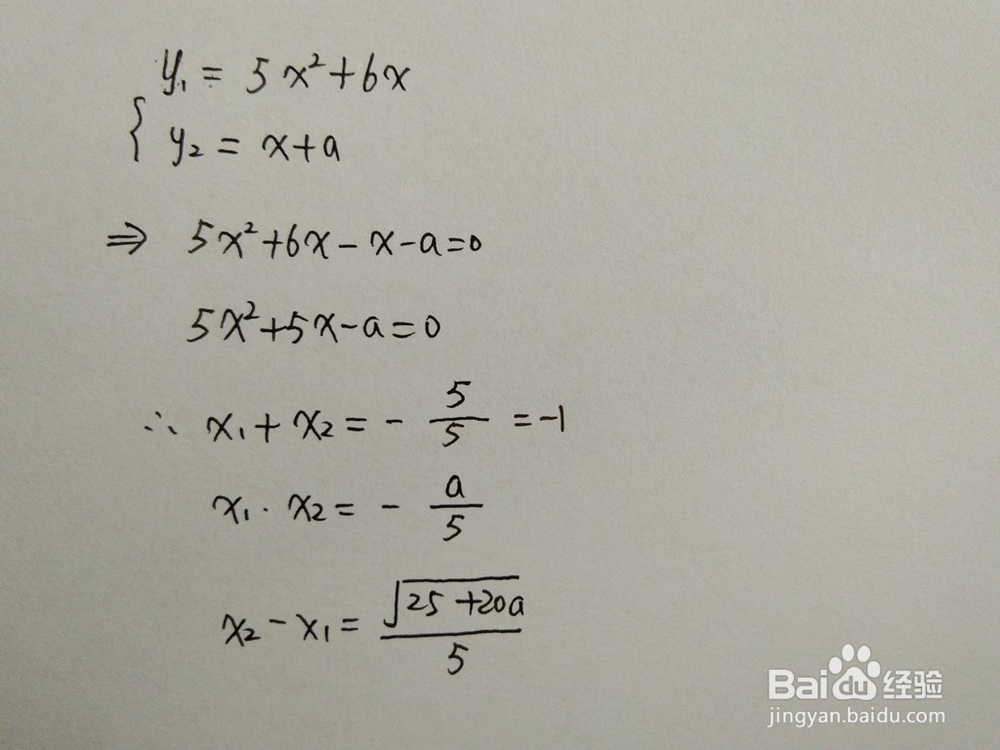 y₁ = 5x²+6x
{ y₂ = x+a
⇒ 5x²+6x-x-a=0
5x²+5x-a=0
∴ x₁+x₂= - 5/5 =-1
x₁·x₂= - a/5
x₂-x₁= √(25+20a)/5
Baidu经验
jingyan.baidu.com